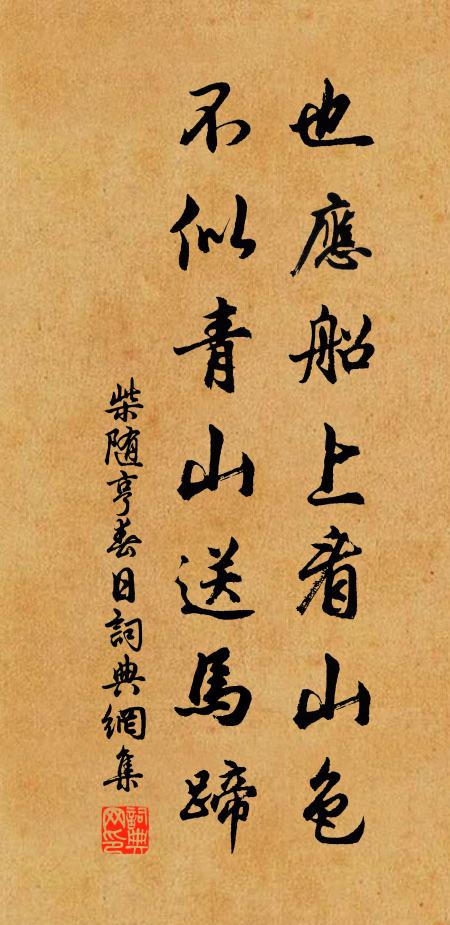 也應船上看山色
不似青山送馬蹄
柴随亨春日詞典網集
詞典网印